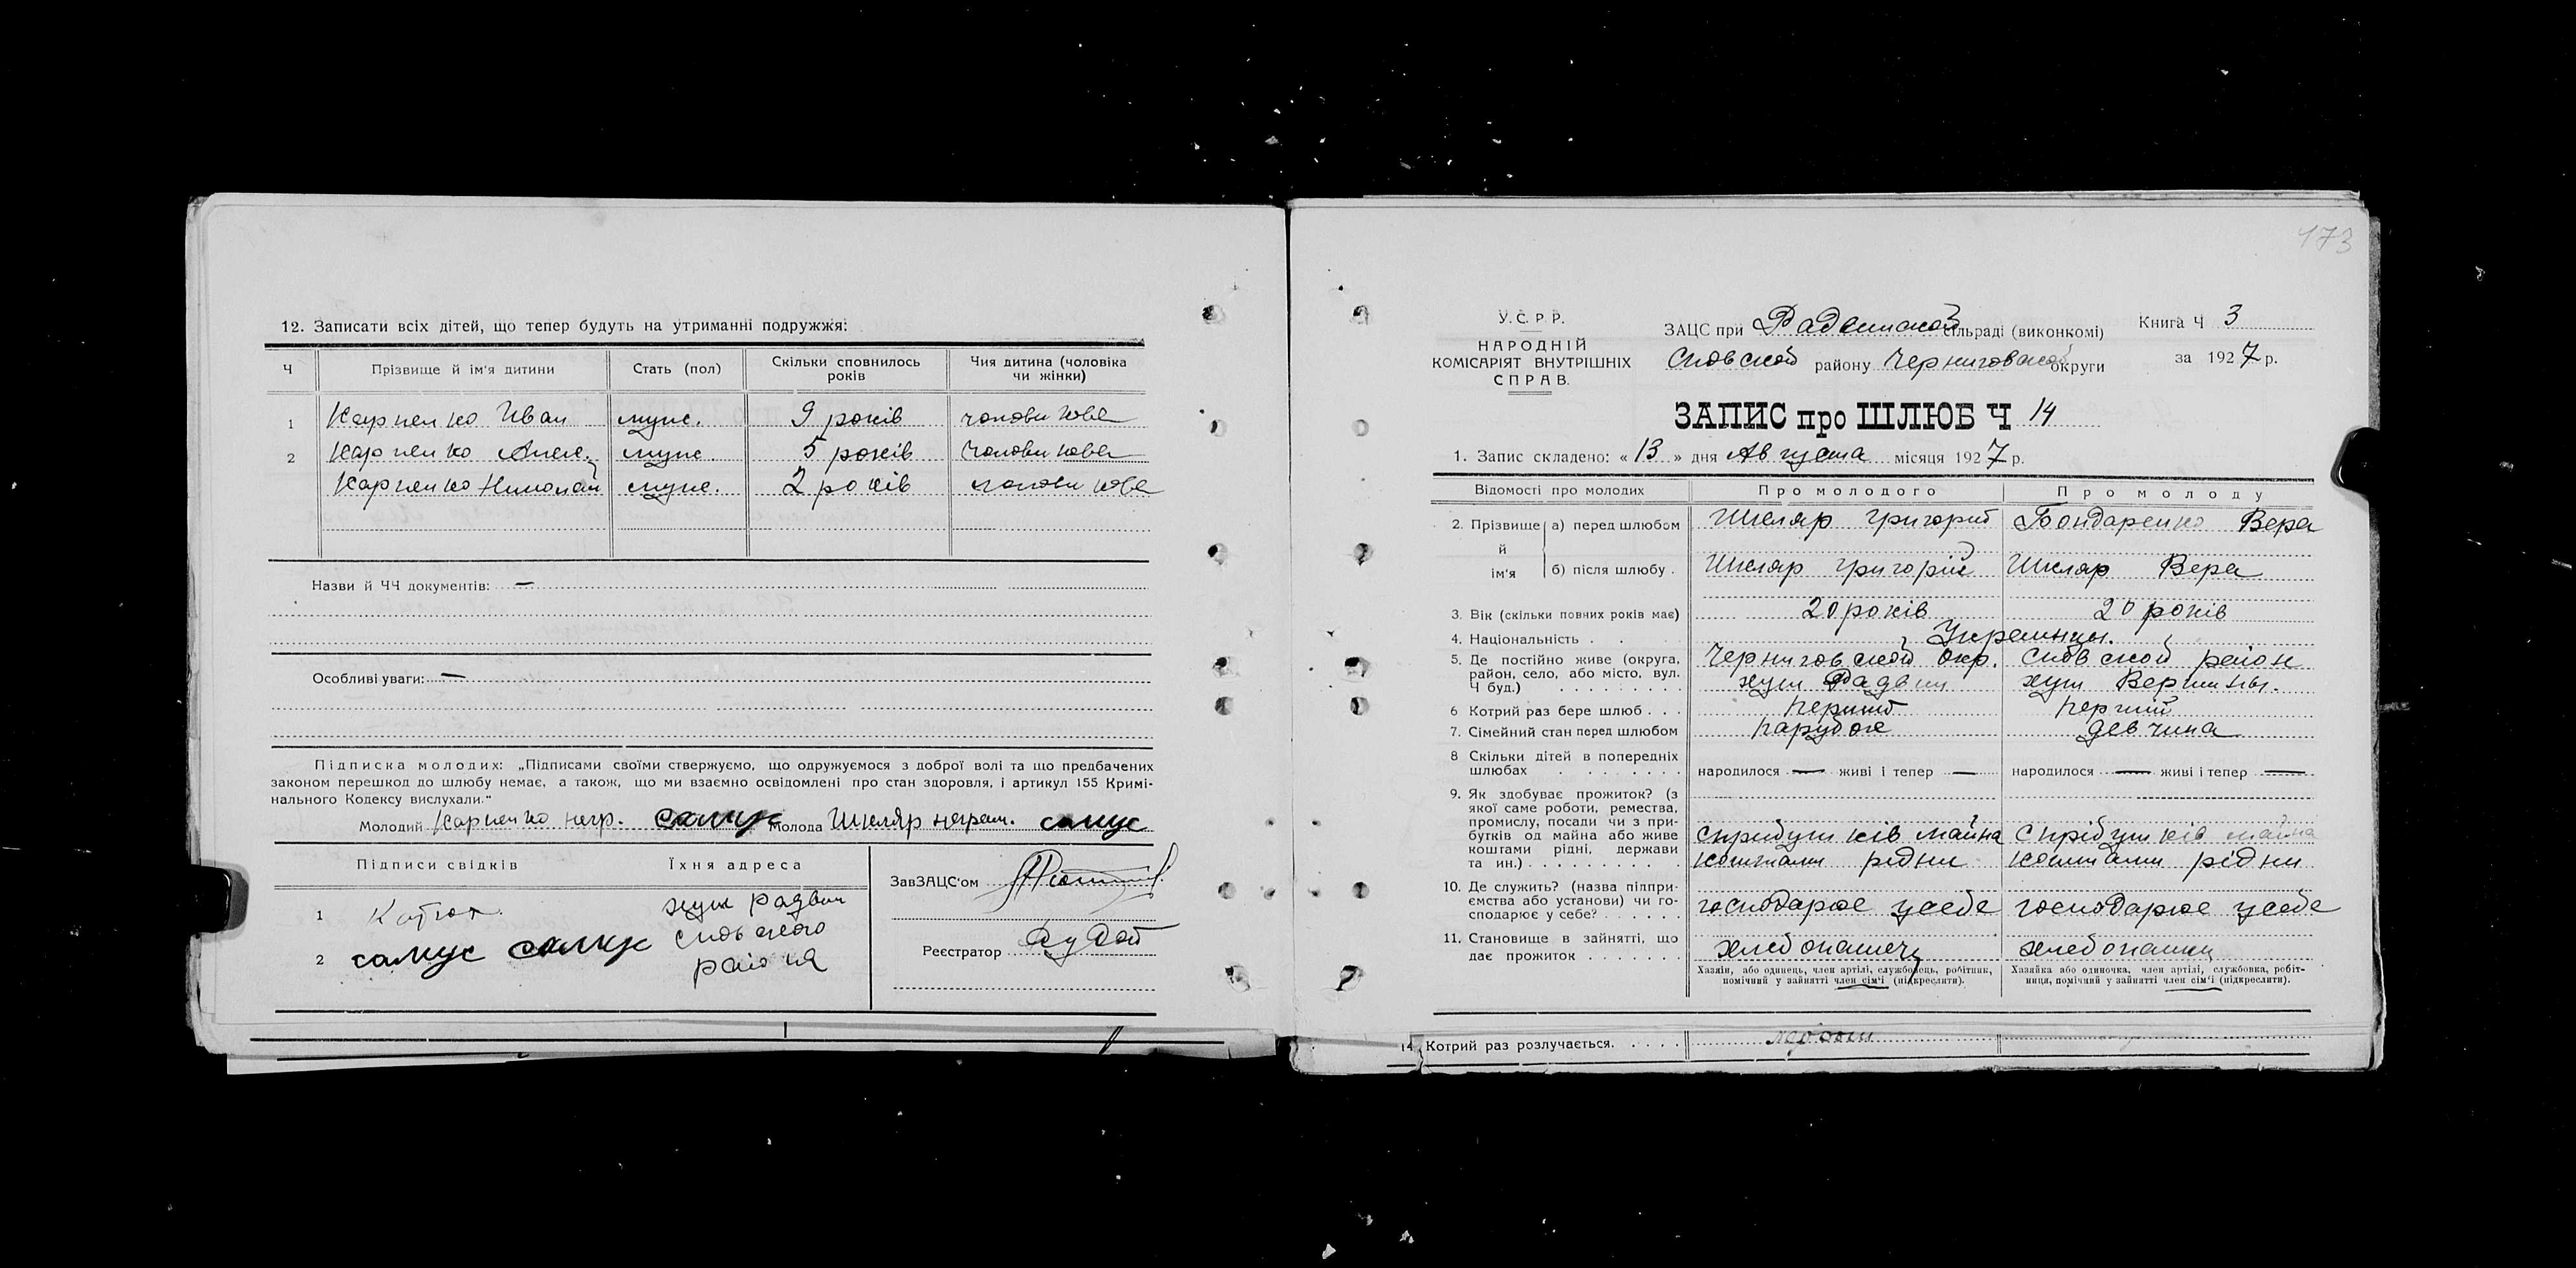 12. Записати всіх дітей, що тепер будуть на утриманні подружжя:
Ч Прізвище й ім'я дитини Стать (пол) Скільки сповнилось років Чия дитина (чоловіка чи жінки)
1 Карпенко Иван муж. 9 років чоловикова
2 Карпенко Алек. муж. 5 років чоловикова
Карпенко Николай муж. 2 років чоловикова
Назви й ЧЧ документів: —
Особливі уваги: —
Підписка молодих: „Підписами своїми стверджуємо, що одружуємося з доброї волі та що предбачених
законом перешкод до шлюбу немає, а також, що ми взаємно освідомлені про стан здоровля, і артикул 155 Кримі-
нального Кодексу вислухали."
Молодий Карпенко негр. самус Молода Шкляр неграм. самус
Підписи свідків Їхня адреса
ЗавЗАЦС'ом
1 хут Радвин
Сновского
2 самус самус
района
Реєстратор
173
У.С.Р.Р.
НАРОДНІЙ
КОМІСАРІЯТ ВНУТРІШНІХ
СПРАВ.
ЗАЦС при сільраді (виконкомі)
Сновской району Черниговской округи
Книга Ч 3
за 1927 р.
ЗАПИС про ШЛЮБ Ч 14
1. Запис складено: « 13 » дня Августа місяця 1927 р.
Відомості про молодих Про молодого Про молоду
2. Прізвище й ім'я а) перед шлюбом Шкляр Григорий Бондаренко Вера
б) після шлюбу . Шкляр Григорій Шкляр Вера
3. Вік (скільки повних років має) 20 років 20 років
4. Національність . . Украинцы.
5. Де постійно живе (округа, район, село, або місто, вул. Ч буд.) Черниговской Окр. Сновской район
хут Радвин хут Вершины.
6 Котрий раз бере шлюб . . . перший перший
7. Сімейний стан перед шлюбом парубок девчина
8 Скільки дітей в попередніх шлюбах народилося — живі і тепер — народилося — живі і тепер —
9. Як здобуває прожиток? (з якої саме роботи, ремества, промислу, посади чи з прибутків од майна або живе коштами рідні, держави та ин.)
С прибутків майна С прібутків майна
коштами рідни коштами рідни
10. Де служить? (назва підприємства або установи) чи господарює у себе? господарює усебе господарює усебе
11. Становище в зайнятті, що дає прожиток хлебопашец хлебопашец
Хазяін, або одинець, член артілі, службовець, робітник, помічний у зайнятті член сім'ї (підкреслити).
Хазяйка або одиночка, член артілі, службовка, робітниця, помічний у зайнятті член сім'ї (підкреслити).
14 Котрий раз розлучається.